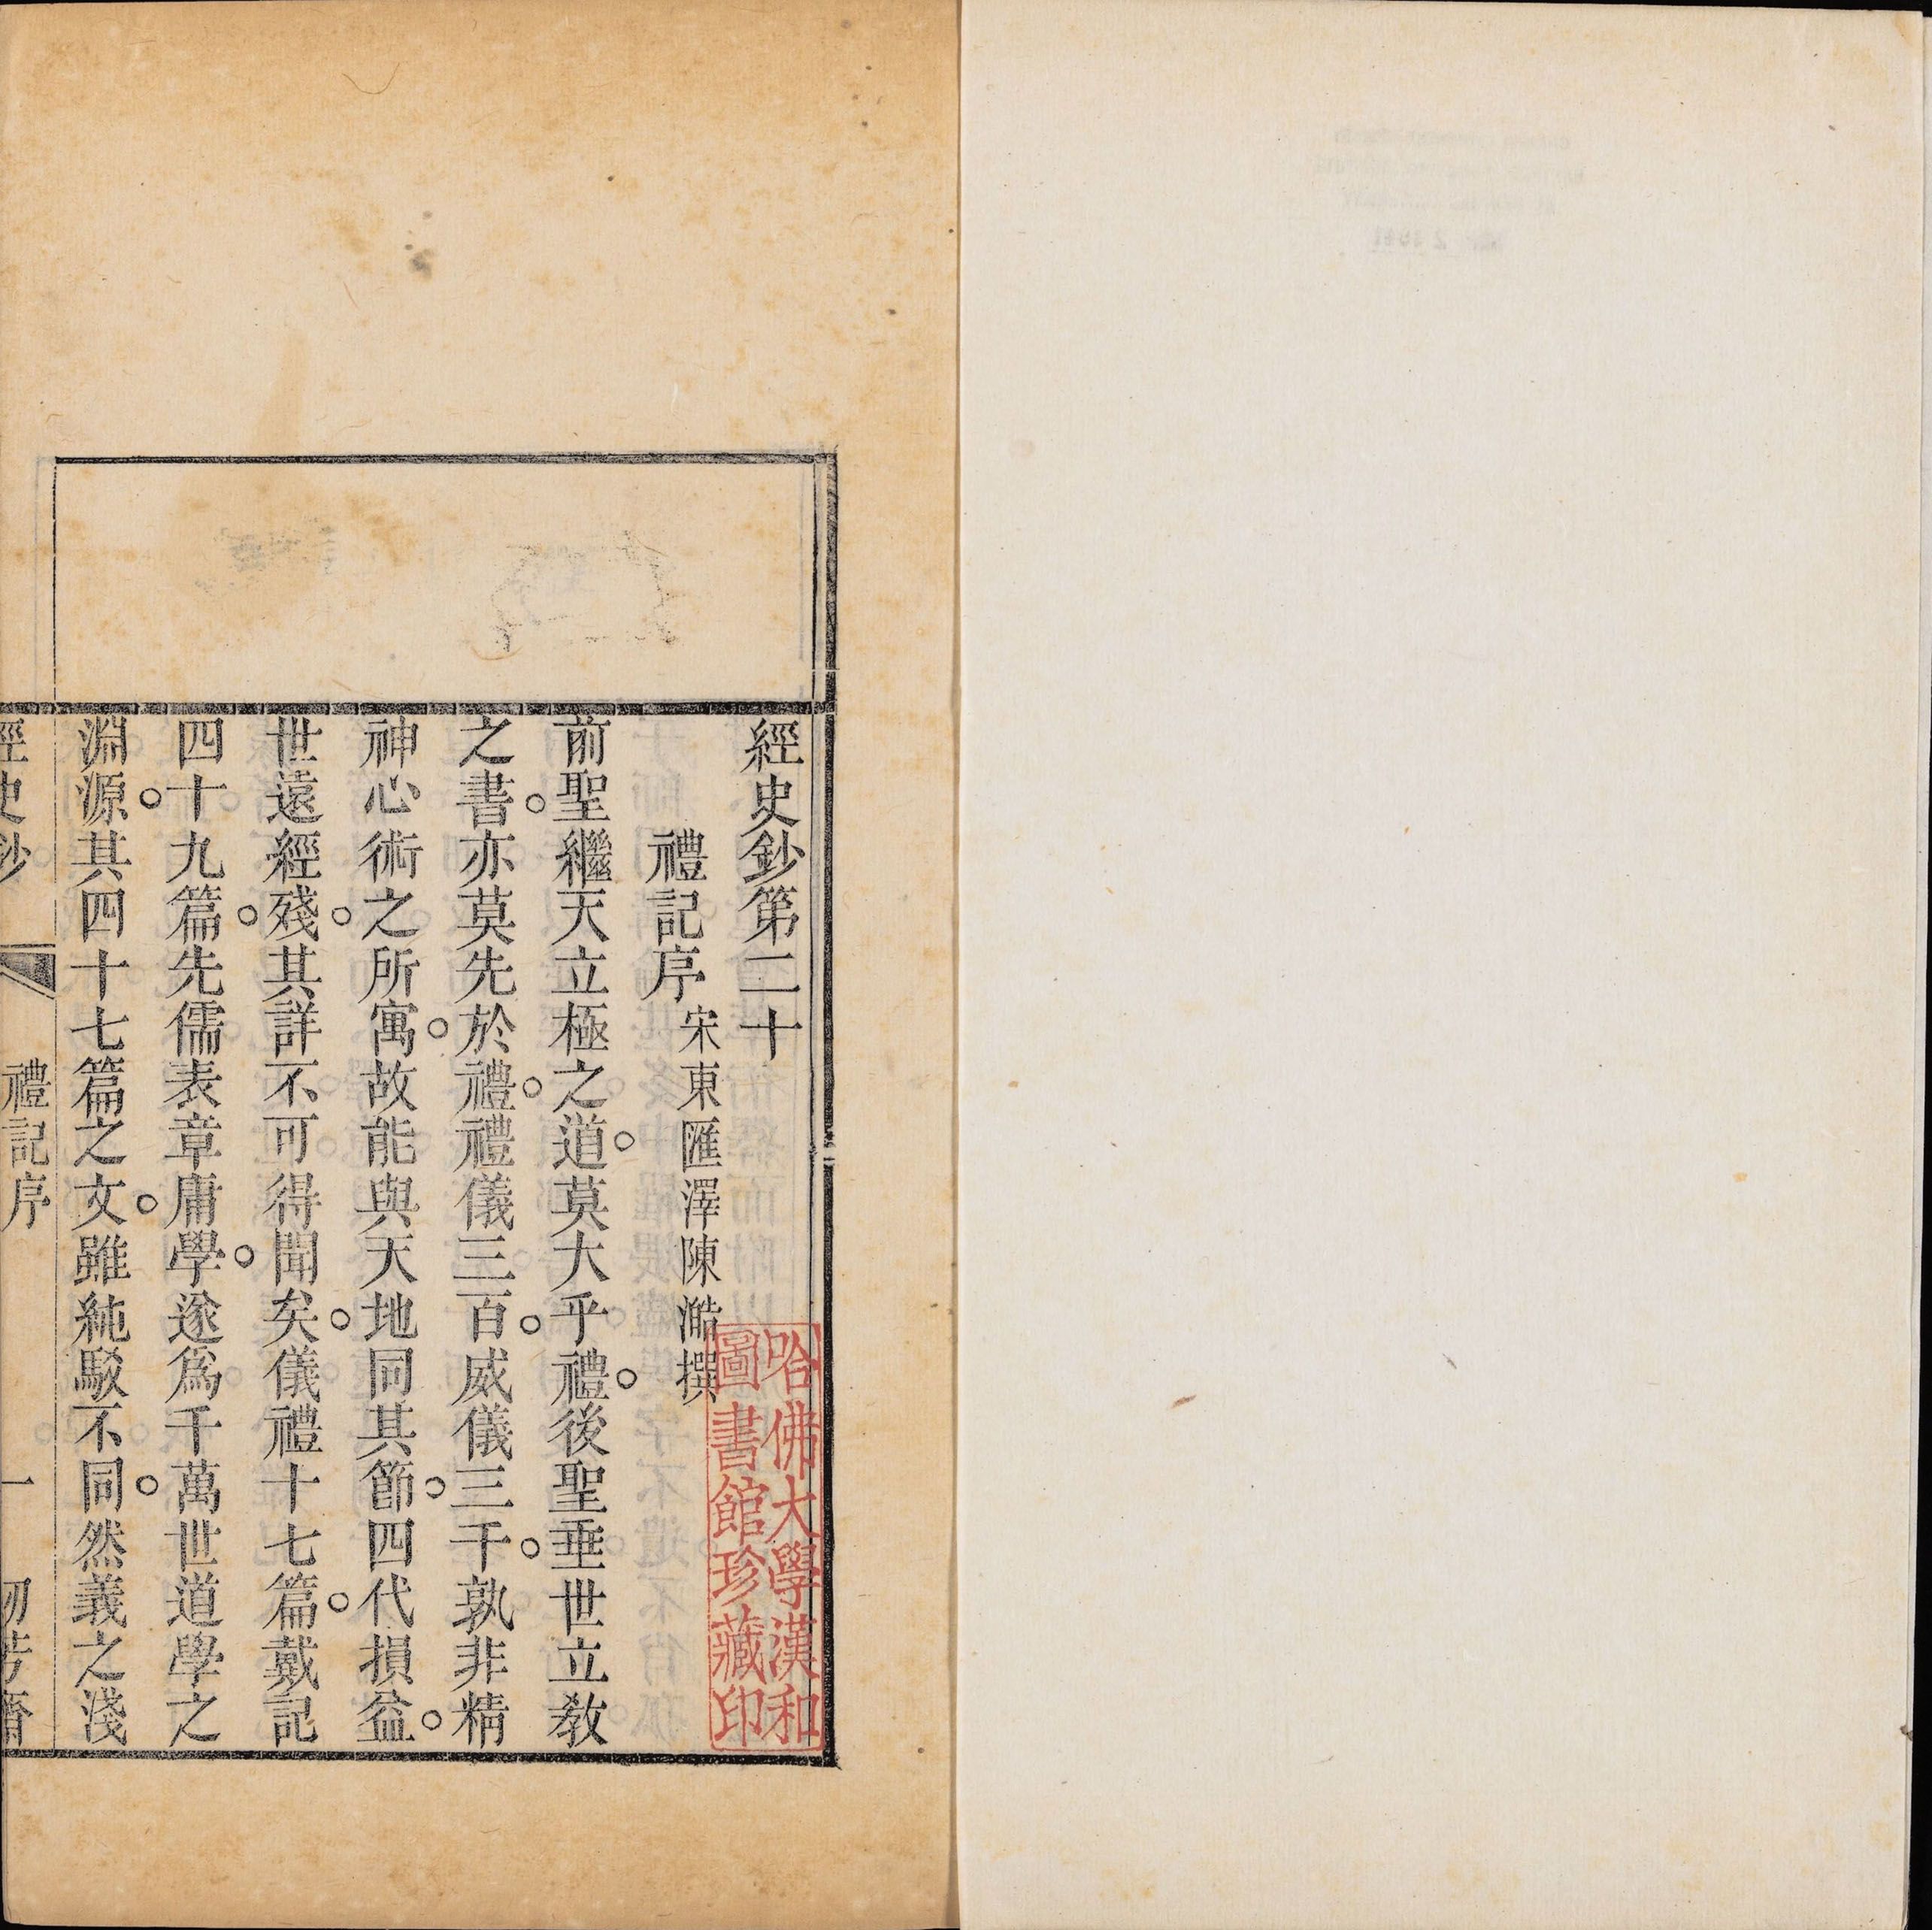 經史鈔第二十
禮記序 宋東匯澤陳澔撰
前聖繼天立極之道。莫大乎禮。後聖垂世立敎
之書。亦莫先於禮。禮儀三百。威儀三千。孰非精
神心術之所寓。故能與天地同其節。四代損益。
世遠經殘。其詳不可得聞矣。儀禮十七篇。戴記
四十九篇。先儒表章庸學。遂爲千萬世道學之
淵源。其四十七篇之文。雖純駁不同。然義之淺
經史鈔 禮記序 一
哈佛大學漢和
圖書館珍藏印